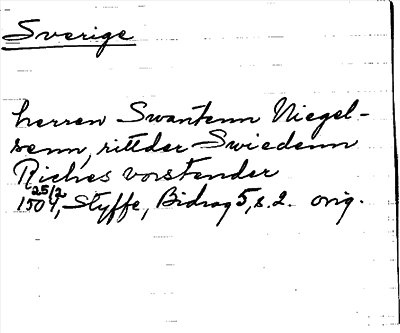 Sverige
herren Swantenn Niegel-
senn, rittder Swiedenn
Riches vorstender
25/2
1504, Styffe, Bidrag 5, s. 2. orig.